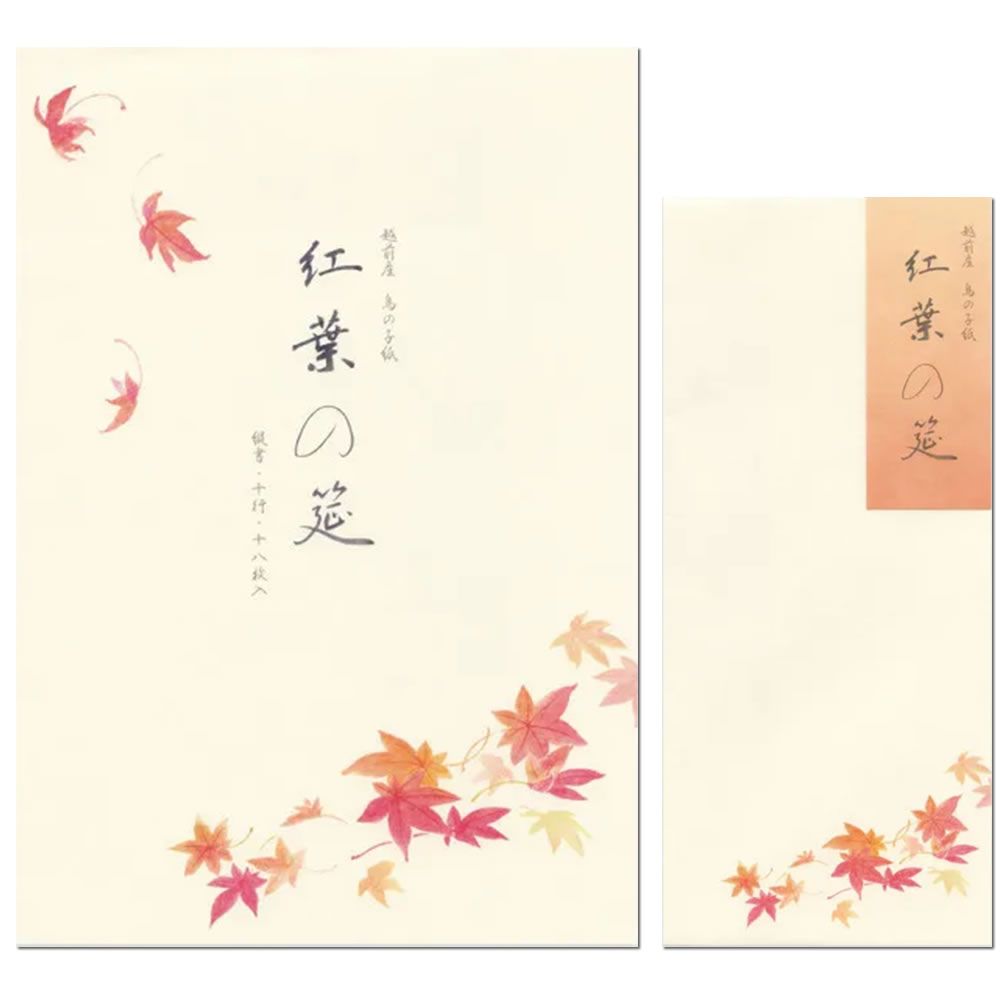 越前産 鳥の子紙
紅葉の筵
縦書・十行・十八枚入
越前産 鳥の子紙
紅葉の筵